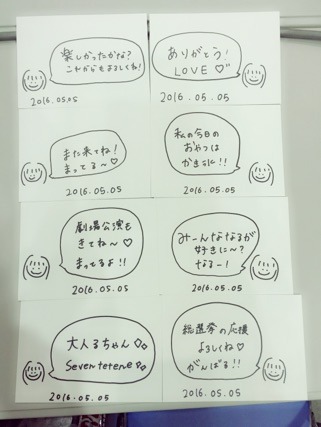 楽しかったかな?
これからもよろしくね!
2016.05.05
ありがとう!
LOVE♡
2016.05.05
また来てね!
まってる〜♡
2016.05.05
私の今日の
おやつは
かきなに!!
2016.05.05
劇場公演も
きてね〜♡
まってるよ!!
2016.05.05
みーんななるが
好きに〜?
なるー!
2016.05.05
大人るちゃん
Seventetene
2016.05.05
総選挙の応援
よろしくね♡
がんばる!!
2016.05.05